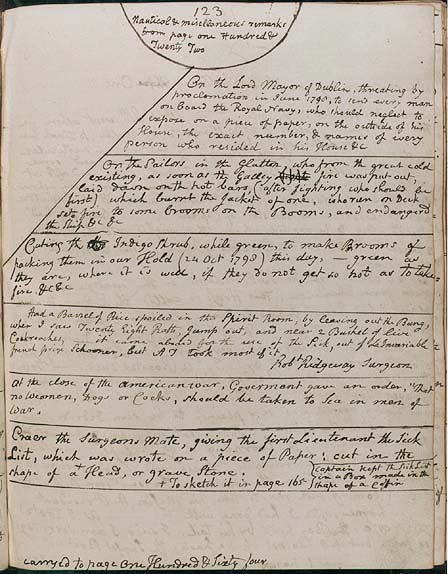 123
Nautical & miscellaneous remarks
from page one Hundred &
Twenty Two
On the Lord Mayor of Dublin, threating by
proclamation in June 1790, to send every man
on board the Royal Navy, who should neglect to
expose on a piece of paper, on the outside of his
House, the exact number, & names of every
person who resided in his House &c
On the Sailors in the Glatton, who from the great cold
existing, as soon as the Galley fire was put out,
laid down on the hot bars, (after fighting who should be
first) which burnt the Jacket of one, who ran on Deck
set fire to some Brooms on the Booms, and endangerd
the Ship &c &c
Cuting the Indigo Shrub, while green, to make Brooms of
packing them in our Hold (24 Oct 1790) this day, — green as
they are, where it is well, if they do not get so hot as to take
fire &c &c
Had a Barrel of Rice spoiled in the Spirit Room, by leaving out the Bung,
when I saw Twenty Eight Ratts, Jump out, and near 2 Bushel of Live
Cokroaches, it came aboard for the use of the Sick, out of La Invariable
french prize Schooner, but A T took most of it
Robt Ridgeway Surgeon
At the close of the american War, Goverment gave an order, "That
no women, Dogs or Cocks, should be taken to Sea in men of
War.
Craer the Surgeons Mate, giving the first Lieutenant the Sick
List, which was wrote on a piece of Paper: cut in the
shape of a + Head, or grave Stone.
+ To sketch it in page 165
Captain kept the Sick List
in a Box made in the
shape of a Coffin
carryed to page one Hundred & Sixty four